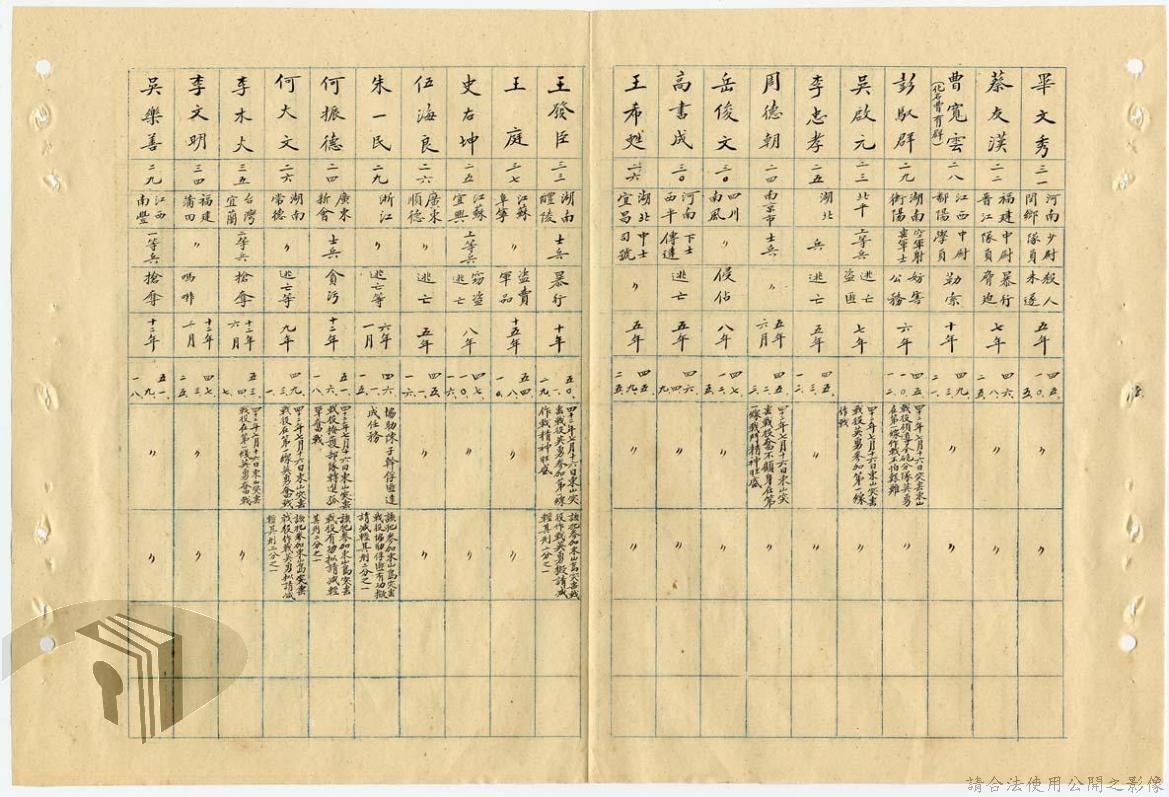 畢文秀
三一
河南
閿鄉
少尉
隊員
殺人
未遂
五年
四五、
一〇、
五、
〃
〃
蔡友漢
二二
福建
晉江
中尉
隊員
暴行
脅迫
七年
四六、
八、
二五、
〃
〃
曹寬雲
(化名曹有群)
二八
江西
鄱陽
中尉
學員
勒索
十年
四九、
三、
二一、
〃
〃
彭馭群
二九
湖南
衡陽
空軍射
擊軍士
妨害
公務
六年
五一、
一〇、
四十二年七月十六日突擊東山
戰役領導子砲分隊英勇
在第一線作戰不怕艱難
吳啟元
二三
北平
上等兵
逃亡
盜匪
七年
四十二年七月十六日東山突擊
戰役英勇參加第一線
作戰
李忠孝
二五
湖北
兵
逃亡
五年
四五、
三、
一二、
〃
周德朝
二四
南京市
士兵
〃
五年
六月
四五、
二、
四十二年七月十六日東山突
擊戰役奮不顧身在第
一線戰鬥精神旺盛
〃
岳俊文
三〇
四川
南風
〃
侵佔
八年
四七、
六、
一二、
〃
〃
高書成
三〇
河南
西平
下士
傳達
逃亡
五年
四六、
四、
九、
〃
〃
王希甦
二六
湖北
宜昌
中士
司號
〃
五年
四五、
九、
二五、
〃
〃
王發臣
三三
湖南
醴陵
士兵
暴行
十年
五〇、
一、
二九、
四十二年七月十六日東山突
擊戰役英勇參加第一線
作戰精神旺盛
該犯參加東山島突擊戰
役作戰英勇擬請減
輕其刑二分之一
王庭
三七
江蘇
阜寧
〃
盜賣
軍品
十五年
五四、
八、
一〇、
〃
〃
史右坤
二五
江蘇
宜興
上等兵
竊盜
逃亡
八年
四七、
一〇、
一六、
〃
〃
伍海良
二六
廣東
順德
〃
逃亡
五年
四五、
一、
一六、
〃
〃
朱一民
二九
浙江
〃
逃亡等
六年
一月
四六、
一、
協助陳子幹俘匪達
成任務
該犯參加東山島突擊
戰役協助俘匪有功擬
請減輕其刑二分之一
何振德
二四
廣東
新會
士兵
貪污
十二年
五一、
六、
一八、
四十二年七月十六日東山突擊
戰役掩護部隊轉進孤
軍奮戰
該犯參加東山島突擊
戰役有功擬請減輕
其刑二分之一
何大文
二六
湖南
常德
〃
逃亡等
九年
四九、
三、
四十二年七月十六日東山突擊
戰役在第一線英勇奮戰
該犯參加東山島突擊
戰役作戰英勇擬請減
輕其刑二分之一
李木火
三五
台灣
宜蘭
二等兵
搶奪
十二年
六月
五三、
七、
四十二年七月十六日東山突擊
戰役在第一線英勇奮戰
〃
李文明
三四
福建
莆田
〃
嗎啡
十二年
二月
四七、
三、
二五、
〃
〃
吳樂善
二九
江西
南豐
一等兵
搶奪
十二年
五一、
九、
一八、
〃
〃
請合法使用公開之影像